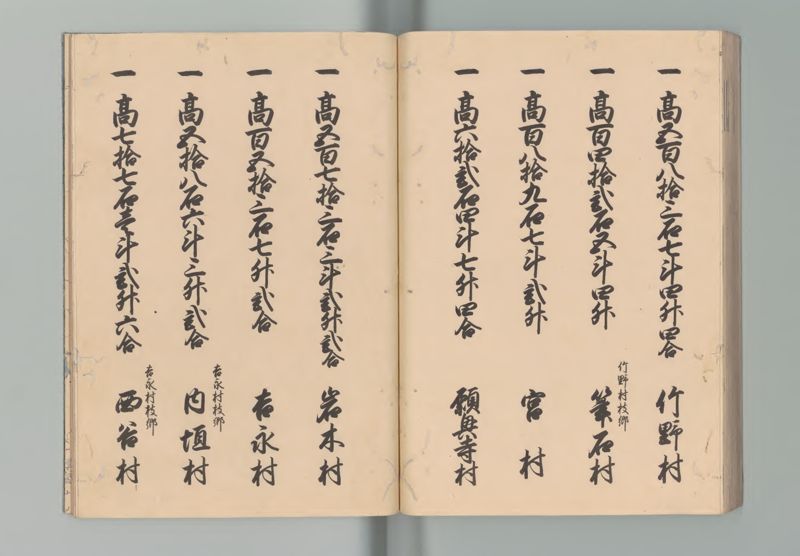 一 高五百八拾三石七斗四升四合 竹野村
一 高百四拾弐石五斗四升 竹野村枝郷 筆石村
一 高百八拾九石七斗弐升 宮村
一 高六拾弐石四斗七升四合 願興寺村
一 高五百七拾三石三斗弐升弐合 岩木村
一 高百五拾三石七升弐合 吉永村
一 高五拾八石六斗三升弐合 吉永村枝郷 内垣村
一 高七拾七石壱斗弐升六合 吉永村枝郷 西谷村